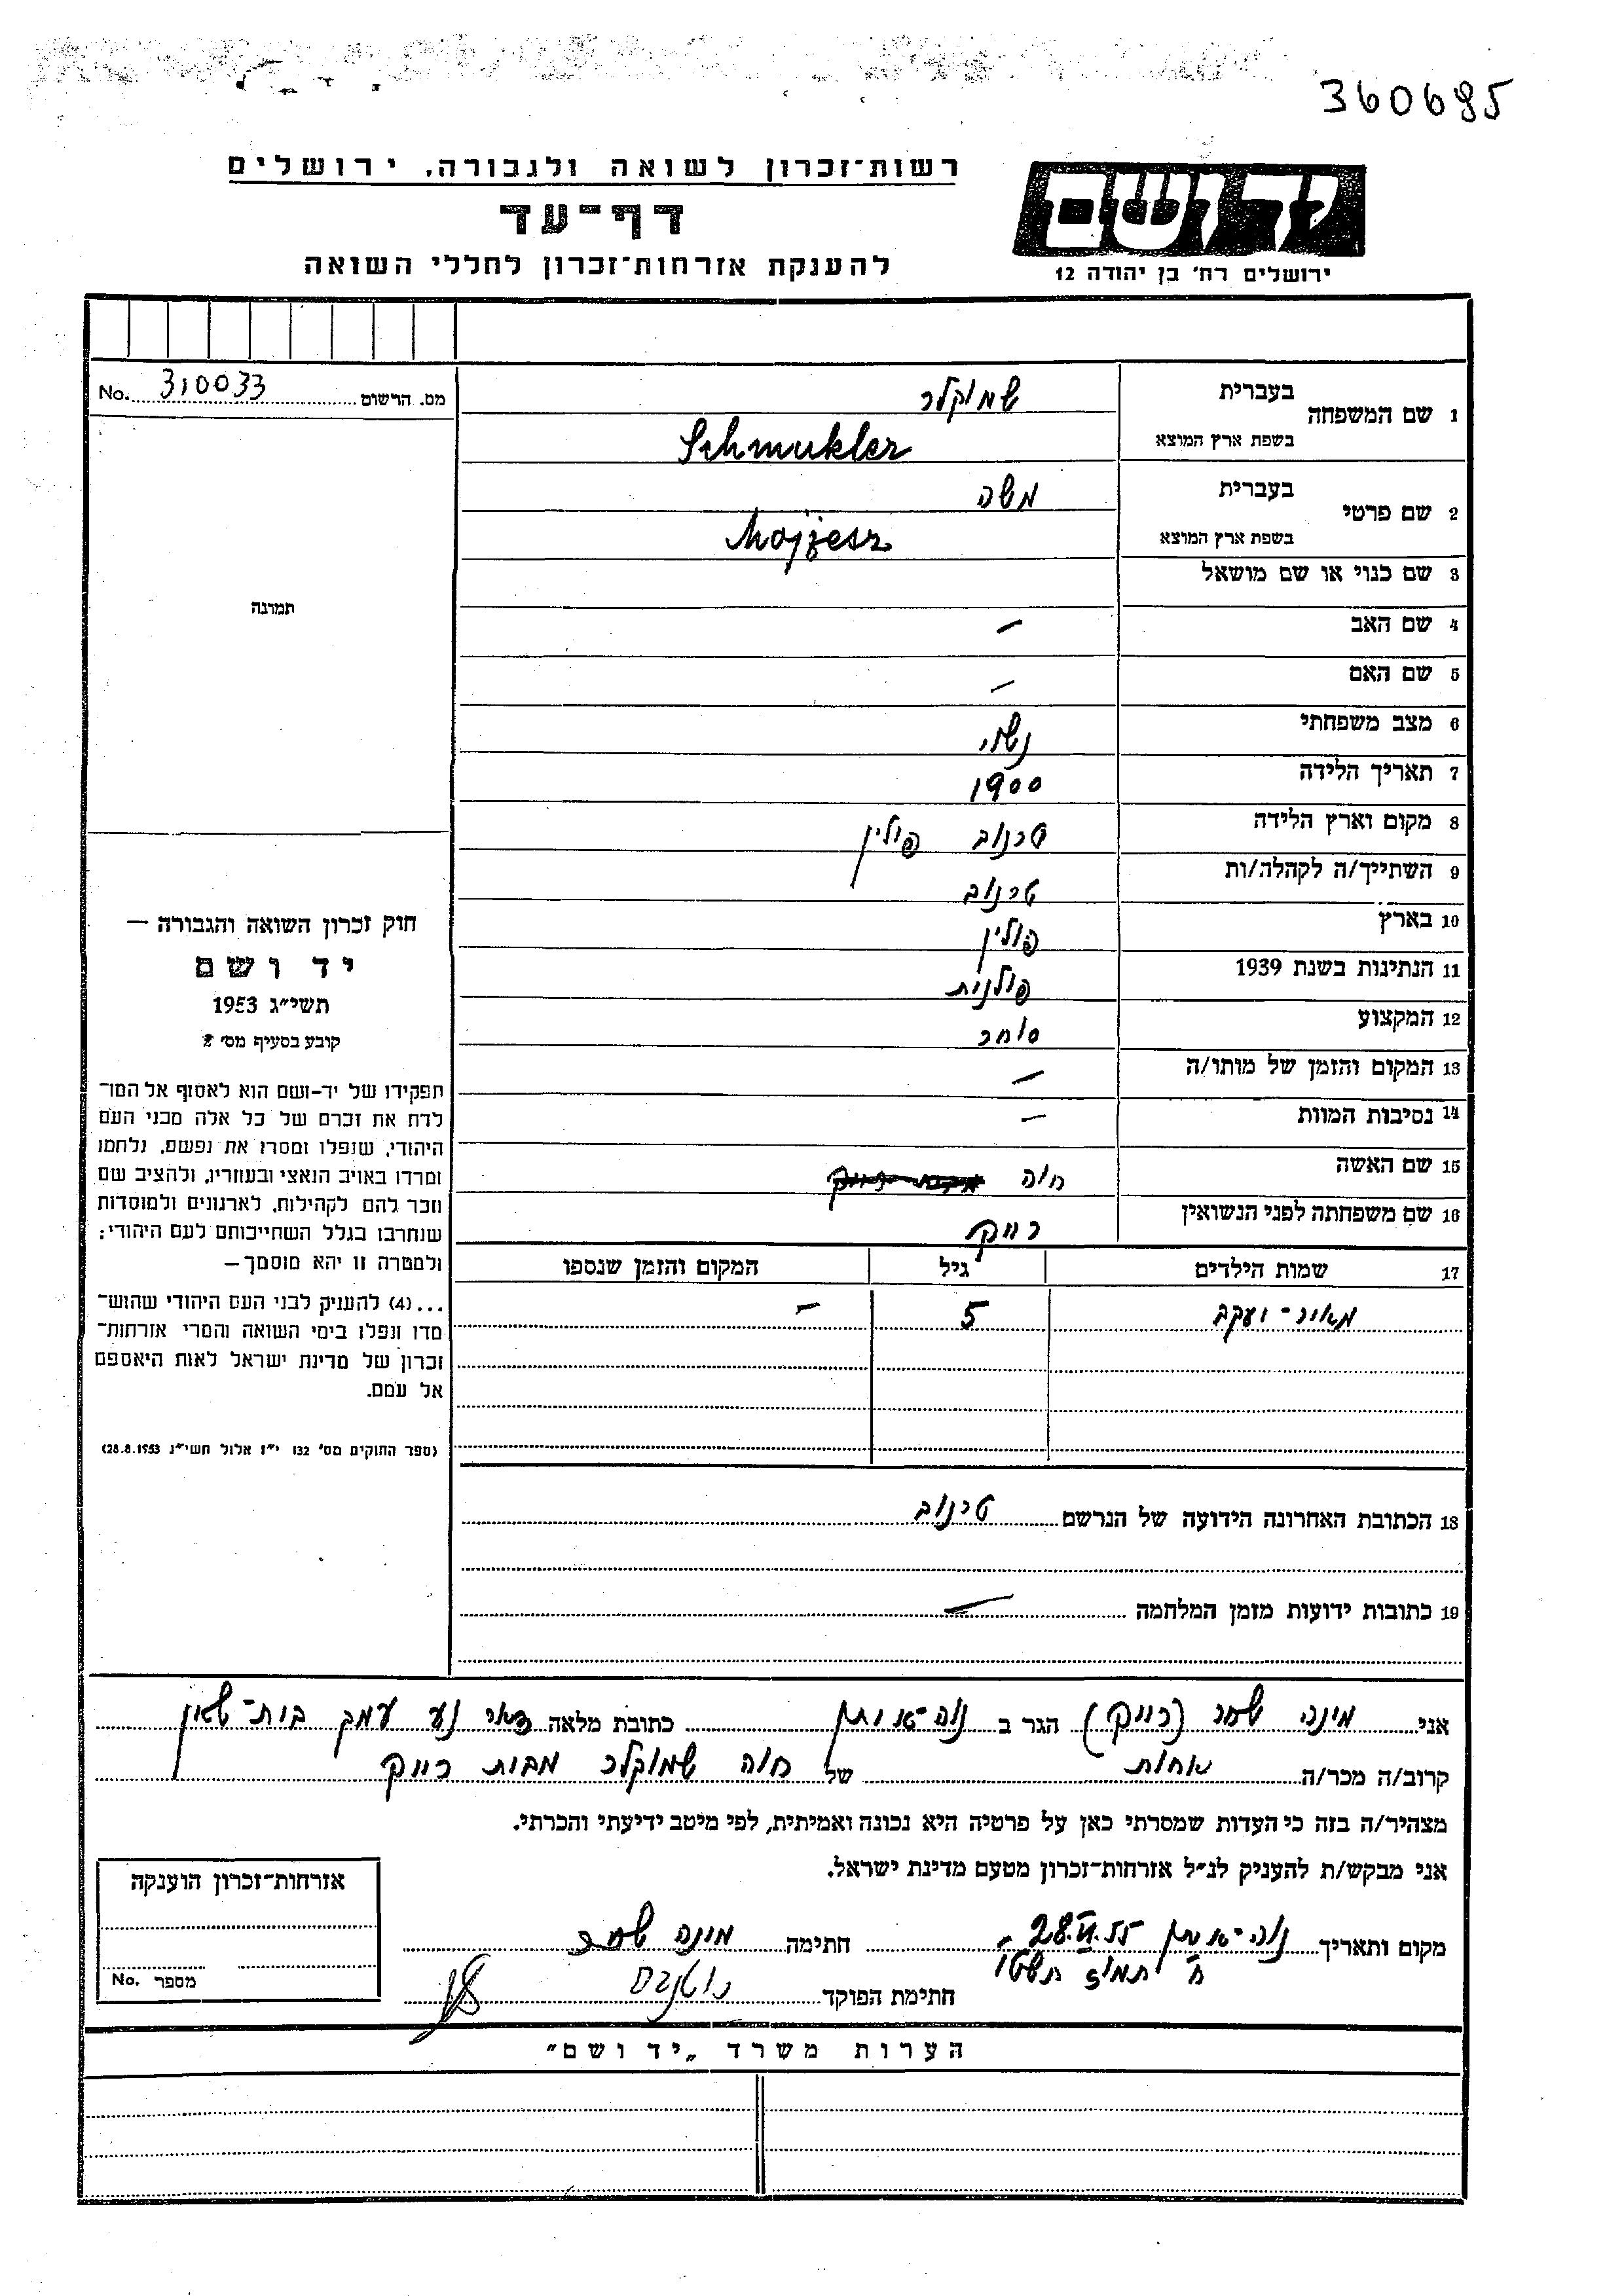 360695
רשות־זכרון לשואה ולגבורה, ירושלים
דף־עד
להענקת אזרחות־זכרון לחללי השואה
יד ושם
ירושלים רח' בן יהודה 12
מס. הרשום 310033 No.
1 שם המשפחה בעברית שמוקלר
בשפת ארץ המוצא Schmukler
2 שם פרטי בעברית משה
בשפת ארץ המוצא Mojżesz
3 שם כנוי או שם מושאל
4 שם האב –
5 שם האם –
6 מצב משפחתי נשוי
7 תאריך הלידה 1900
8 מקום וארץ הלידה טרנוב פולין
9 השתייך/ה לקהלה/ות טרנוב
10 בארץ פולין
11 הנתינות בשנת 1939 פולנית
12 המקצוע סוחר
13 המקום והזמן של מותו/ה –
14 נסיבות המוות –
15 שם האשה חוה
16 שם משפחתה לפני הנשואין רייך
17 שמות הילדים גיל המקום והזמן שנספו
מאיר־יעקב 5 –
18 הכתובת האחרונה הידועה של הנרשם טרנוב
19 כתובות ידועות מזמן המלחמה –
תמונה
חוק זכרון השואה והגבורה –
יד ושם
תשי"ג 1953
קובע בסעיף מס' 2
תפקידו של יד-ושם הוא לאסוף אל המו־
לדת את זכרם של כל אלה מבני העם
היהודי, שנפלו ומסרו את נפשם, נלחמו
ומרדו באויב הנאצי ובעוזריו, ולהציב שם
וזכר להם לקהילות, לארגונים ולמוסדות
שנחרבו בגלל השתייכותם לעם היהודי;
ולמטרה זו יהא מוסמך –
...(4) להעניק לבני העם היהודי שהוש־
מדו ונפלו בימי השואה והמרי אזרחות־
זכרון של מדינת ישראל לאות היאספם
אל עמם.
(ספר החוקים מס' 132 י"ז אלול תשי"ג 28.8.1953)
אני מינה שחר (רייך) הגר ב נוה־איתן כתובת מלאה דאר נע עמק בית־שאן
קרוב/ה מכר/ה אחות של חוה שמוקלר מבית רייך
מצהיר/ה בזה כי העדות שמסרתי כאן על פרטיה היא נכונה ואמיתית, לפי מיטב ידיעתי והכרתי.
אני מבקש/ת להעניק לנ"ל אזרחות־זכרון מטעם מדינת ישראל.
מקום ותאריך נוה־איתן 28.VI.55 חתימה מינה שחר
ח' תמוז תשט"ו
חתימת הפוקד
אזרחות־זכרון הוענקה
מספר No.
הערות משרד „יד ושם"